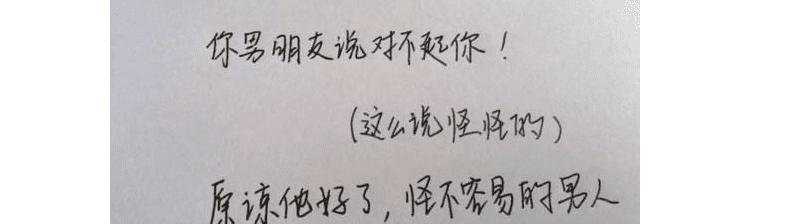 你男朋友说对不起你！
（这么说怪怪的）
原谅他好了，怪不容易的男人